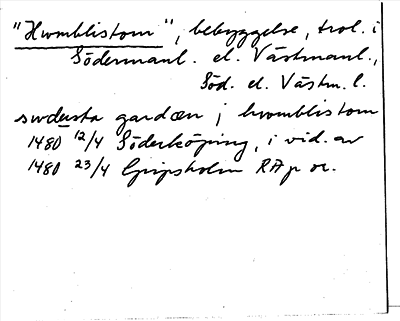 "Hwomblistom", bebyggelse, trol. i
Södermanl. el. Västmanl.,
Söd. el. Västm. l.
swdersta gardæn j hwomblistom
1480 12/4 Söderköping, i vid. av
1480 23/4 Gripsholm RAp or.